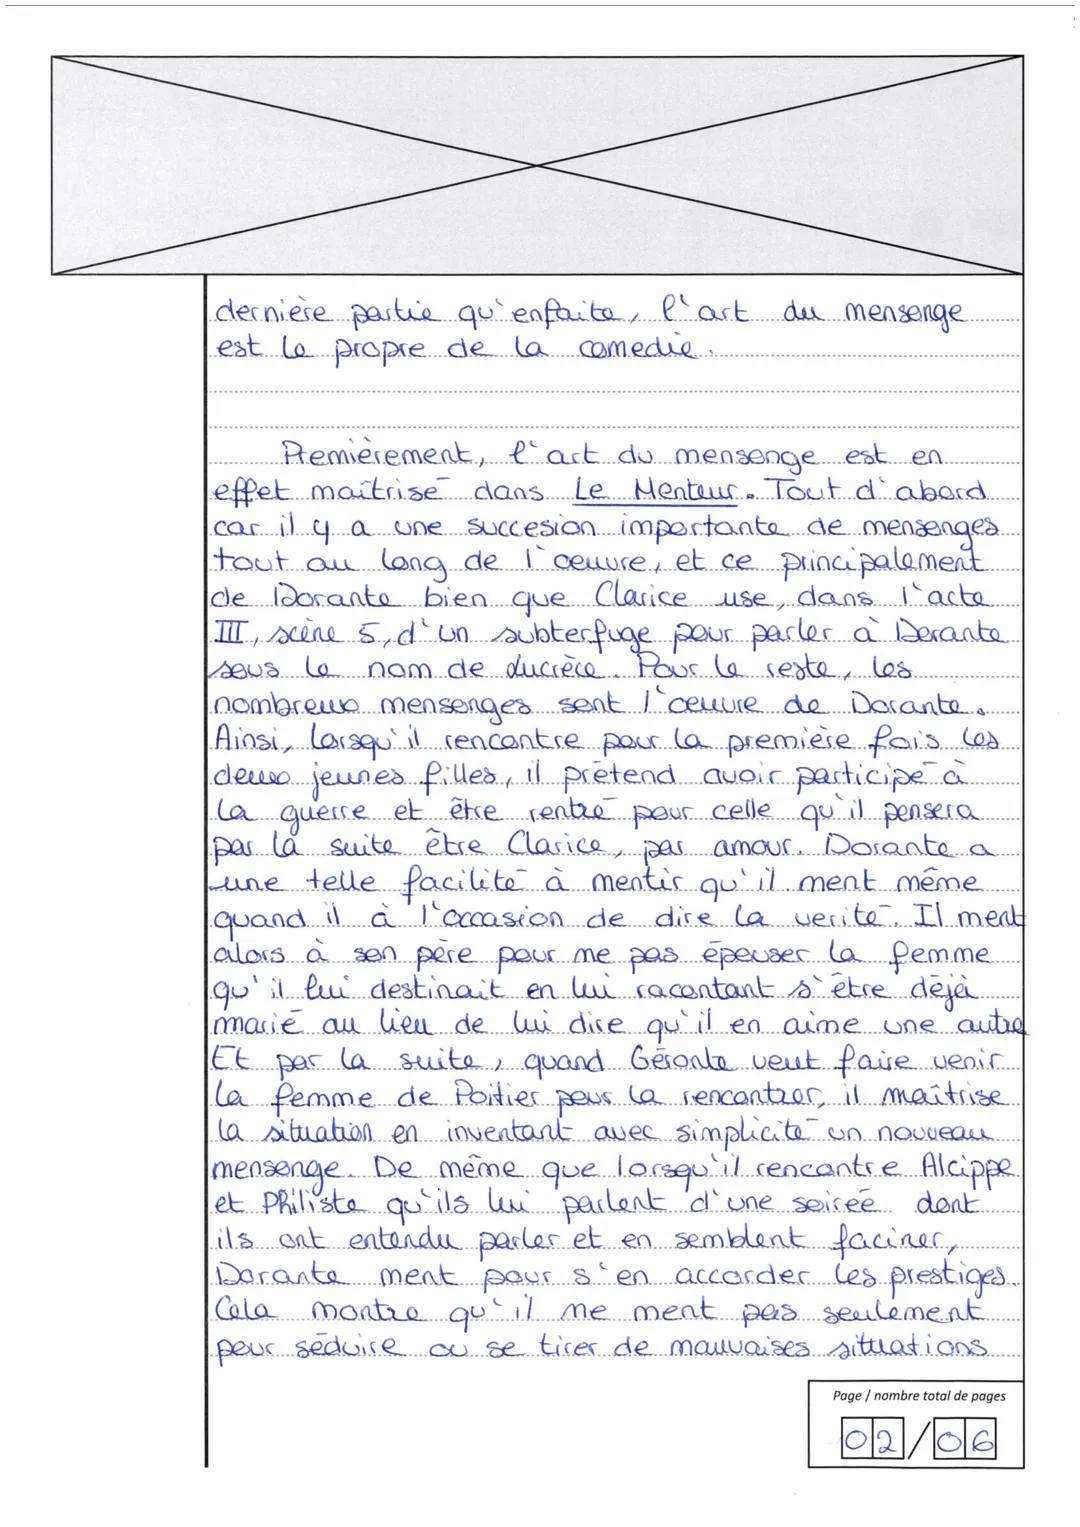 dernière partie qu'enfaite, l'art du mensonge
est le propre de la comedie.
Premièrement, l'art du mensonge est en
effet maîtrisé dans Le Menteur. Tout d'abord
car il y a une succesion importante de mensonges
tout au long de l'oeuvre, et ce principalement
de Dorante bien que Clarice use, dans l'acte
III, scène 5, d'un subterfuge pour parler à Dorante
sous le nom de Lucrèce. Pour le reste, les
nombreux mensonges sont l'oeuvre de Dorante.
Ainsi, lorsqu'il rencontre pour la première fois les
deux jeunes filles, il prétend avoir participé à
la guerre et être rentré pour celle qu'il pensera
par la suite être Clarice, par amour. Dorante a
une telle facilité à mentir qu'il ment même
quand il à l'occasion de dire la verité. Il ment
alors à son père pour ne pas épouser la femme
qu'il lui destinait en lui racontant s'être déjà
marié au lieu de lui dire qu'il en aime une autre
Et par la suite, quand Géronte veut faire venir
la femme de Poitier pour la rencontrer, il maîtrise
la situation en inventant avec simplicité un nouveau
mensonge. De même que lorsqu'il rencontre Alcippe
et Philiste qu'ils lui parlent d'une soirée dont
ils ont entendu parler et en semblent faciner,
Dorante ment pour s'en accorder les prestiges.
Cela montre qu'il ne ment pas seulement
pour séduire ou se tirer de mauvaises situations
Page / nombre total de pages
02/06